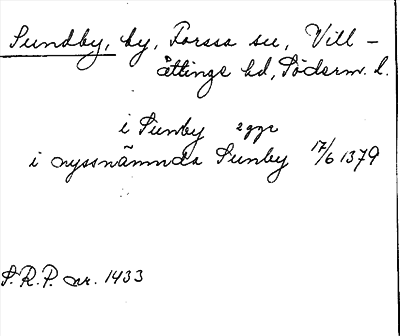 Sundby, by, Forssa sn, Vill-
åttinge hd, Söderm. l.
i Sunby 2 ggr
i nyssnämnda Sunby 17/6 1379
S.R.P. nr. 1433